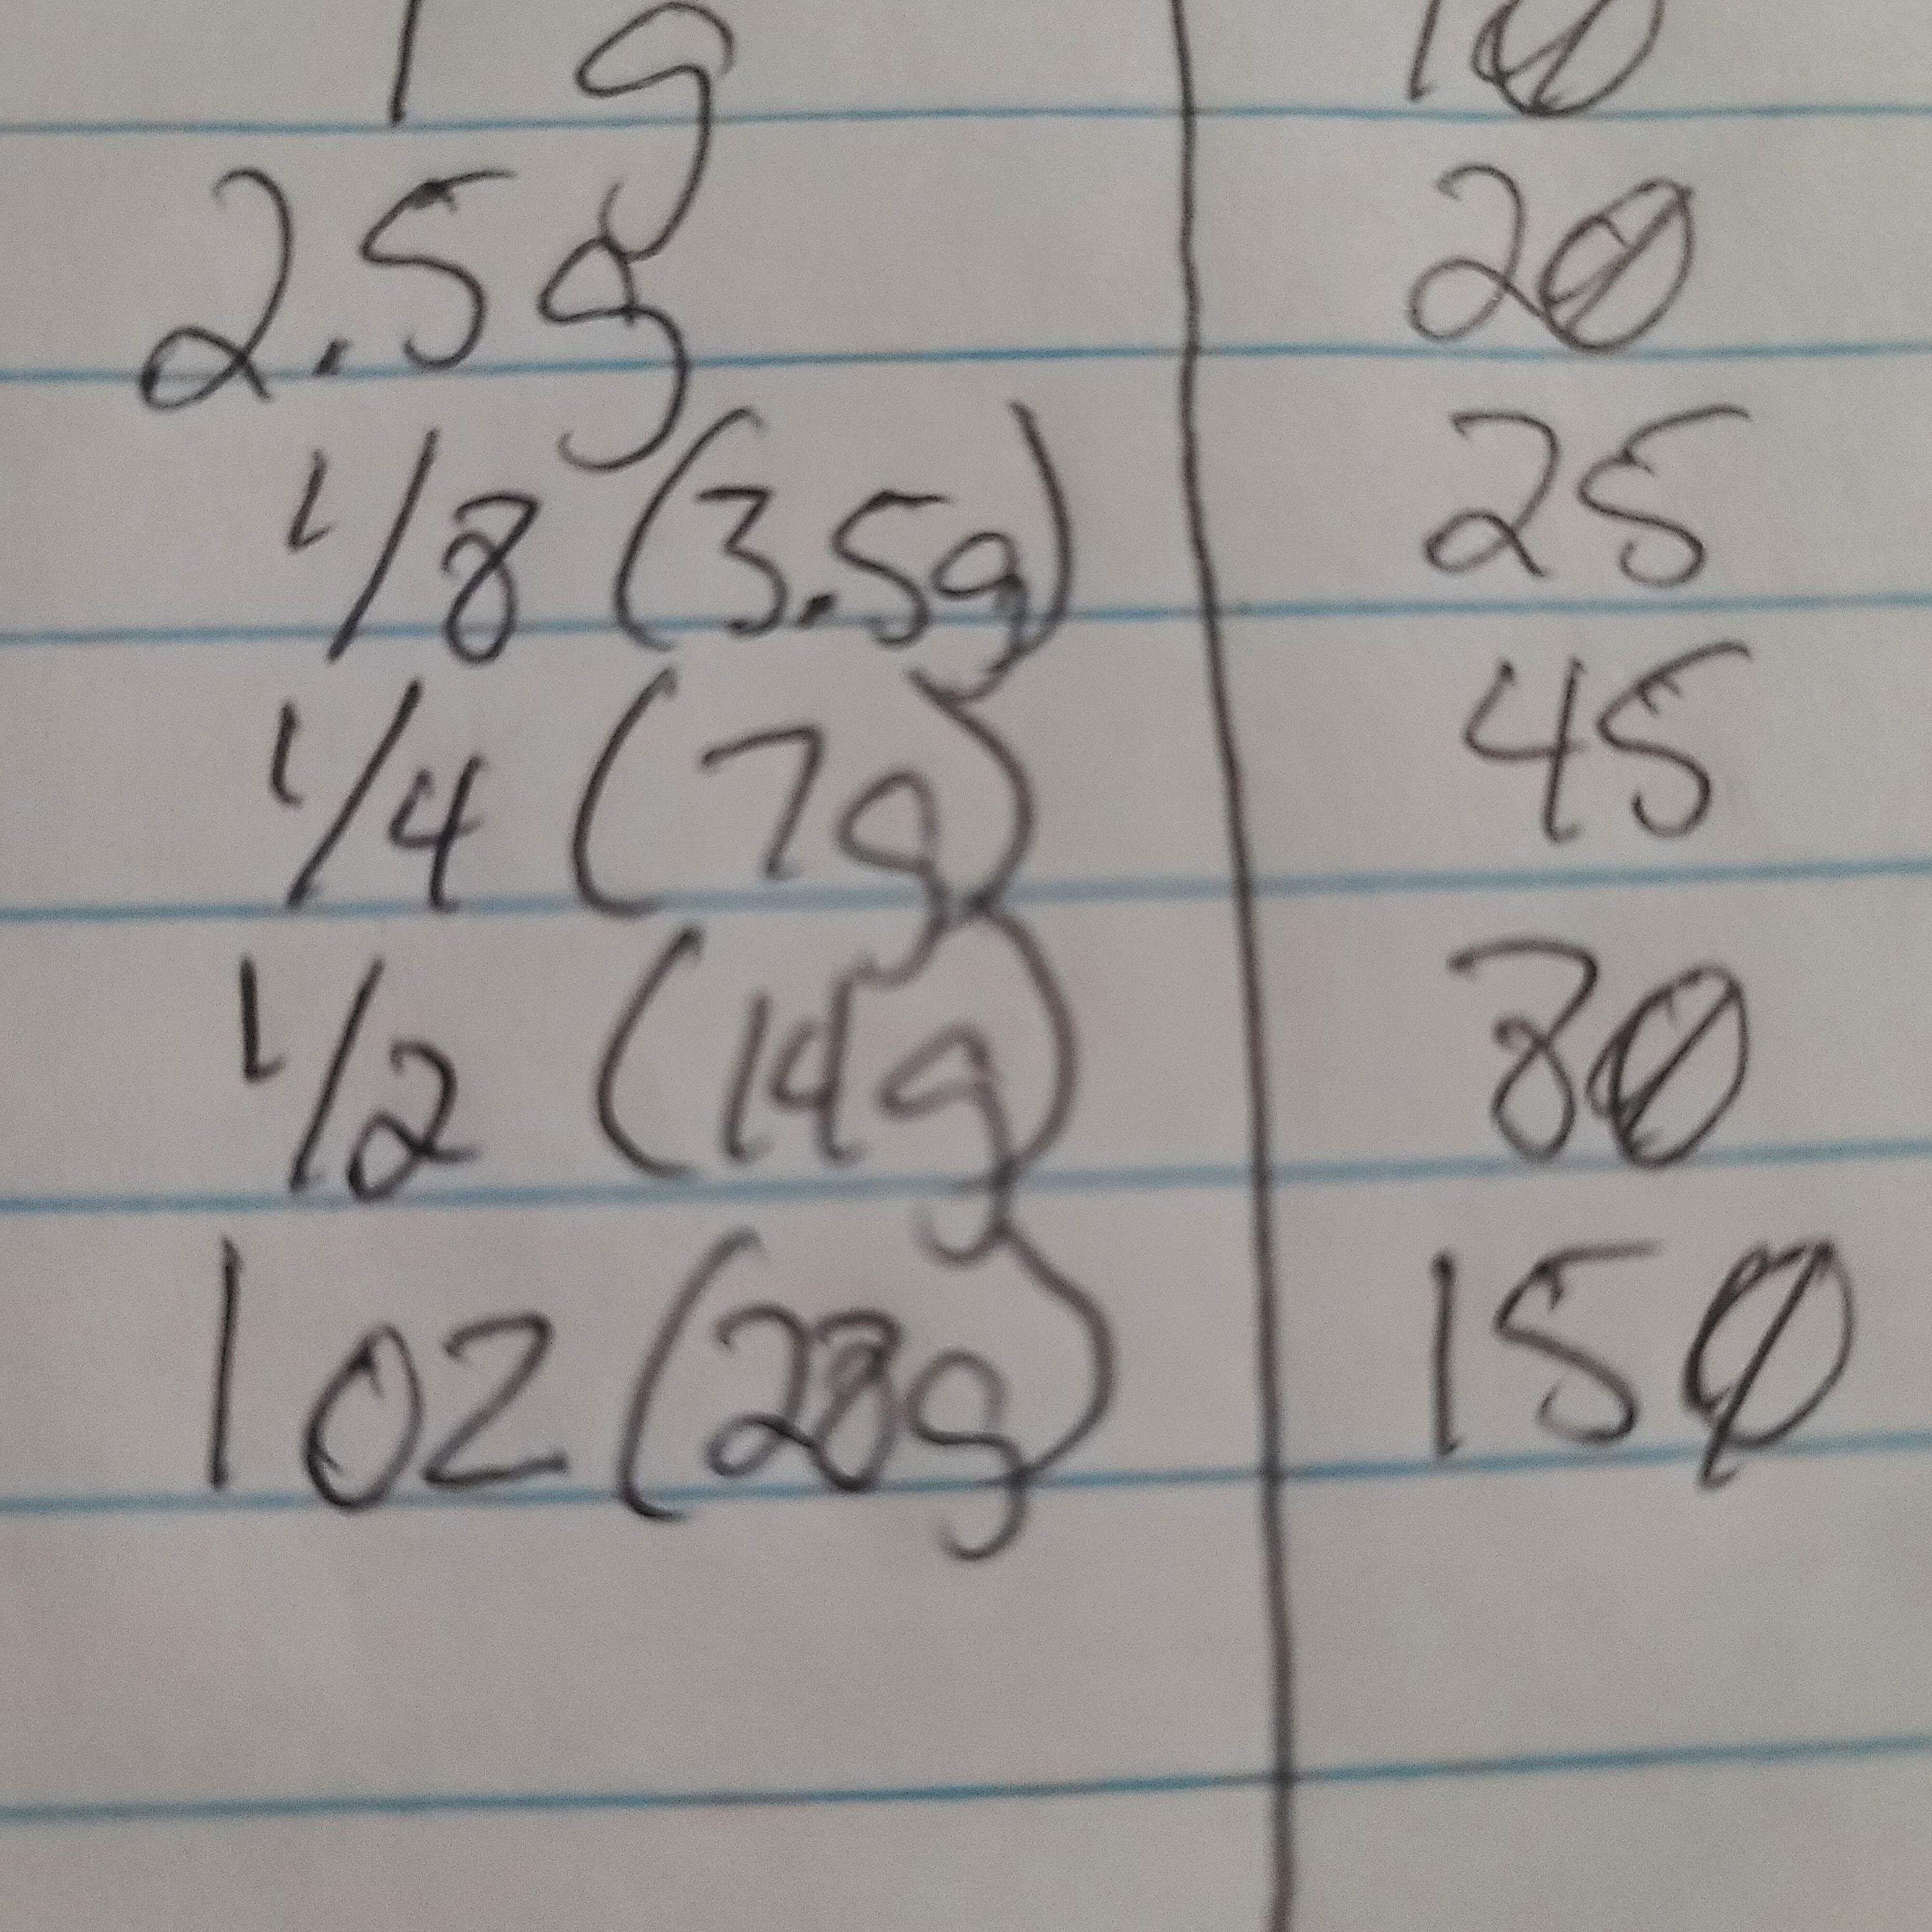 1 g 10
2.5g 20
1/8 (3.5g) 25
1/4 (7g) 45
1/2 (14g) 80
1 oz (28g) 150